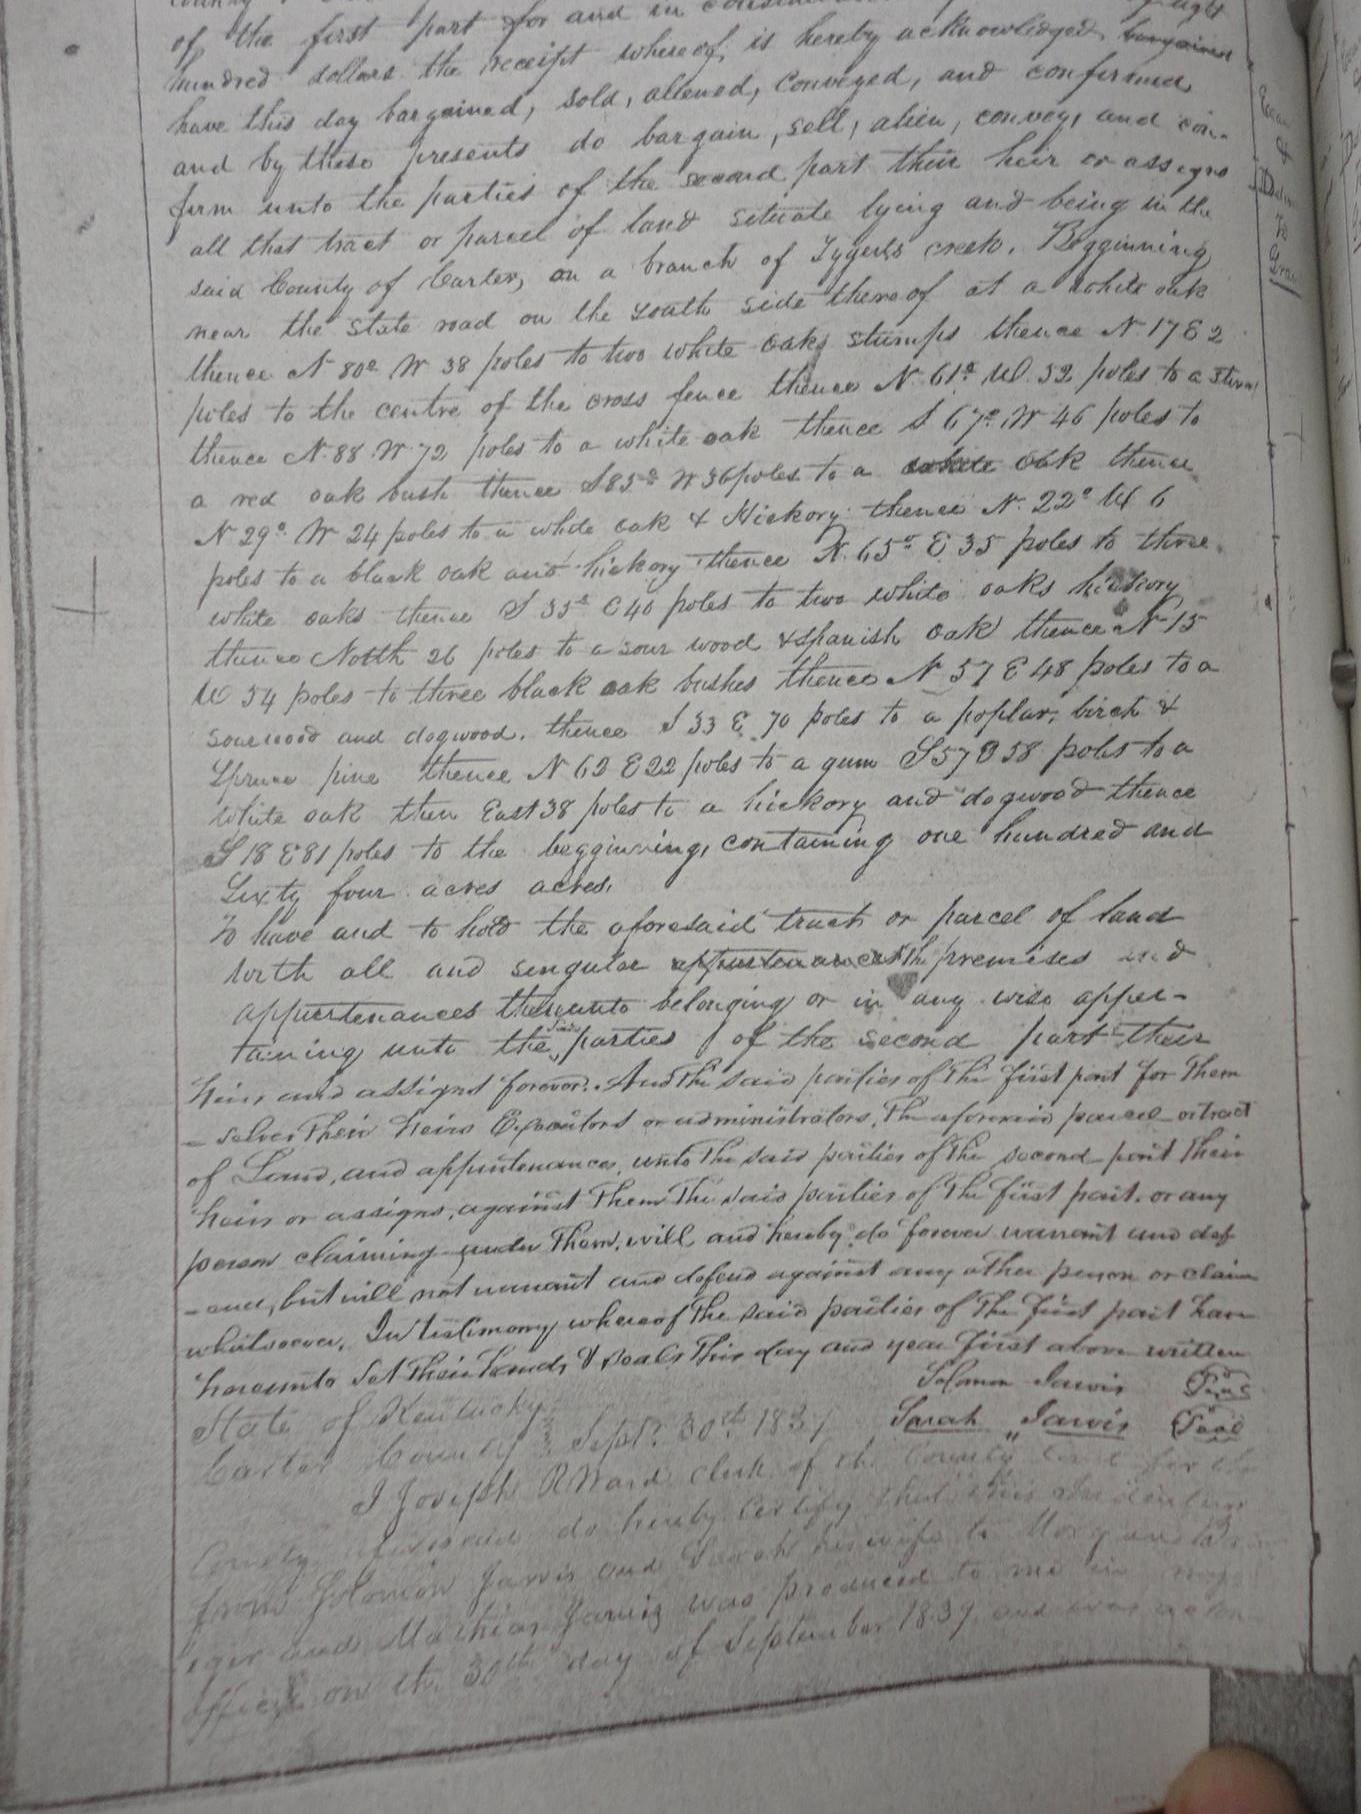 of the first part for and in
hundred dollars the receipt whereof, is hereby acknowledged bargained
have this day bargained, sold, aliened, conveyed, and confirmed
and by these presents do bargain, sell, alien, convey, and con-
firm unto the parties of the second part their heir or assigns
all that tract or parcel of land situate lying and being in the
said County of Carter, on a branch of Tygerts creek. Begginning
near the state road on the south side thereof at a white oak
thence N 80° W 38 poles to two white oaks stumps thence N. 17 E 2
poles to the centre of the cross fence thence N. 61° W. 32 poles to a
thence N. 88 W. 72 poles to a white oak thence S 67° W 46 poles to
a red oak bush thence S 85° W 36 poles to a white oak thence
N 29° W 24 poles to a white oak & Hickory thence N. 22° W 6
poles to a black oak and hickory thence N. 65° E 35 poles to three
white oaks thence S 35° E 40 poles to two white oaks hickory
thence North 26 poles to a sour wood & spanish oak thence N 15
W 54 poles to three black oak bushes thence N 57 E 48 poles to a
sourwood and dogwood. thence S 33 E 70 poles to a poplar, birch &
Spruce pine thence N 62 E 22 poles to a gum S 57 E 58 poles to a
white oak then East 38 poles to a hickory and dogwood thence
S 18 E 81 poles to the begginning, containing one hundred and
Sixty four acres acres.
To have and to hold the aforesaid tract or parcel of land
with all and singular appurtenances the premises and
appurtenances thereunto belonging or in any wise apper-
taining unto the said parties of the second part their
heirs and assigns forever. And the said parties of the first part for them
- selves their heirs Executors or administrators, the aforesaid parcel or tract
of Land, and appurtenances, unto the said parties of the second part their
heirs or assigns, against them the said parties of the first part. or any
person claiming under them, will and hereby do forever warrant and def
- end, but will not warrant and defend against any other person or claim
whatsoever. In testimony whereof the said parties of the first part have
hereunto set their hands & seals this day and year first above written
Solomon Jarvis Seal
Sarah " Jarvis Seal
State of Kentucky
Carter County Sept. 30th 1839
I Joseph R Ward Clerk of the County Court for the
County aforesaid do hereby certify that this Indenture
from Solomon Jarvis and Sarah his wife to Morgan
and Mathias Jarvis was produced to me in my
office on the 30th day of September 1839 and was